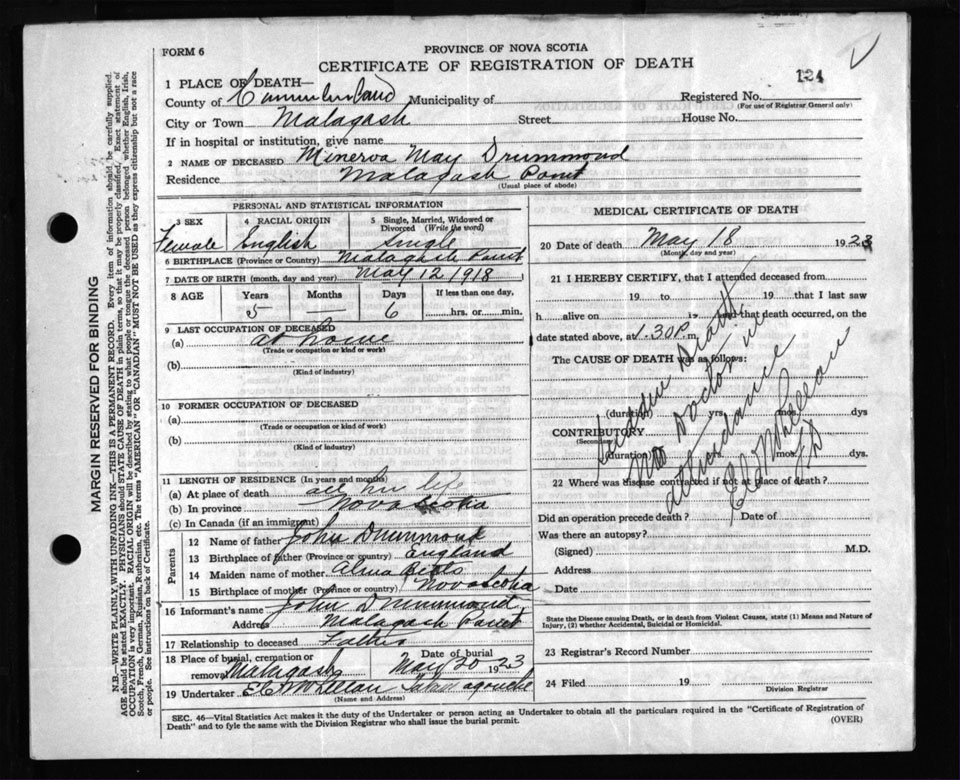 FORM 6
PROVINCE OF NOVA SCOTIA
CERTIFICATE OF REGISTRATION OF DEATH
124
1 PLACE OF DEATH—
County of Cumberland Municipality of
Registered No.
(For use of Registrar General only)
City or Town Malagash Street House No.
If in hospital or institution, give name
2 NAME OF DECEASED Minerva May Drummond
Residence Malagash Point
(Usual place of abode)
PERSONAL AND STATISTICAL INFORMATION
3 SEX
Female
4 RACIAL ORIGIN
English
5 Single, Married, Widowed or Divorced (Write the word)
Single
6 BIRTHPLACE (Province or Country) Malagash Point
7 DATE OF BIRTH (month, day and year) May 12 1918
8 AGE Years Months Days If less than one day,
5 — 6 hrs. or min.
9 LAST OCCUPATION OF DECEASED
(a) at home
(Trade or occupation or kind or work)
(b)
(Kind of industry)
10 FORMER OCCUPATION OF DECEASED
(a)
(Trade or occupation or kind or work)
(b)
(Kind of industry)
11 LENGTH OF RESIDENCE (In years and months)
(a) At place of death all her life
(b) In province Nova Scotia
(c) In Canada (if an immigrant)
Parents
12 Name of father John Drummond
13 Birthplace of father (Province or country) England
14 Maiden name of mother Alma
15 Birthplace of mother (Province or country) Nova Scotia
16 Informant's name John Drummond
Address Malagash Point
17 Relationship to deceased Father
18 Place of burial, cremation or removal Malagash
Date of burial
May 20 1923
19 Undertaker
(Name and Address)
MEDICAL CERTIFICATE OF DEATH
20 Date of death May 18 1923
(Month, day and year)
21 I HEREBY CERTIFY, that I attended deceased from
19 to 19 that I last saw
h alive on 19 and that death occurred, on
date stated above, at 1.30 P. m.
The CAUSE OF DEATH was as follows:
Sudden Death
No Doctor in
attendance
(duration) yrs. mos. dys
CONTRIBUTORY
(Secondary)
(duration) yrs. mos. dys.
22 Where was disease contracted if not at place of death?
Did an operation precede death? Date of
Was there an autopsy?
(Signed) M.D.
Address
Date
State the Disease causing Death, or in death from Violent Causes, state (1) Means and Nature of
Injury, (2) whether Accidental, Suicidal or Homicidal.
23 Registrar's Record Number
24 Filed 19
Division Registrar
SEC. 46—Vital Statistics Act makes it the duty of the Undertaker or person acting as Undertaker to obtain all the particulars required in the "Certificate of Registration of
Death" and to fyle the same with the Division Registrar who shall issue the burial permit.
(OVER)
MARGIN RESERVED FOR BINDING
N.B.—WRITE PLAINLY, WITH UNFADING INK—THIS IS A PERMANENT RECORD. Every item of information should be carefully supplied.
AGE should be stated EXACTLY. PHYSICIANS should STATE CAUSE OF DEATH in plain terms, so that it may be properly classified. Exact statement of
OCCUPATION is very important. RACIAL ORIGIN will be described by stating to what people or tongue the deceased person belonged whether English, Irish,
Scotch, French, German, Russian, Ruthenian, etc. The terms "AMERICAN" or "CANADIAN" MUST NOT BE USED as they express citizenship but not a race
or people. See instructions on back of Certificate.